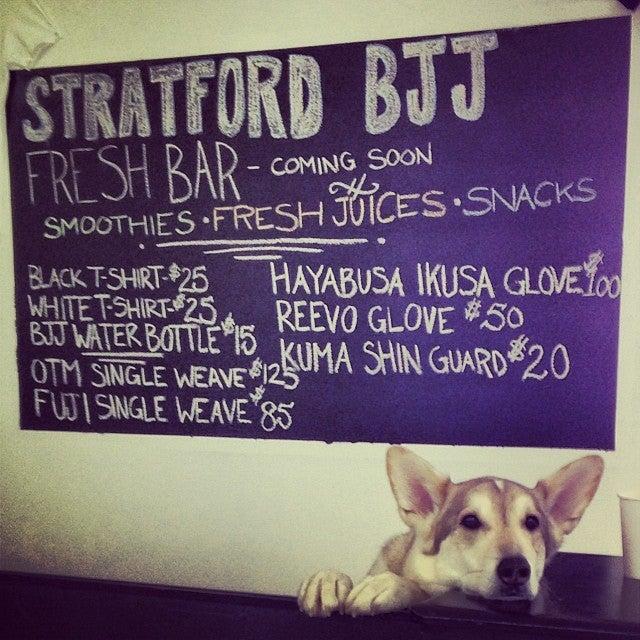 STRATFORD BJJ
FRESH BAR - COMING SOON
SMOOTHIES · FRESH JUICES · SNACKS
BLACK T-SHIRT-$25
WHITE T-SHIRT-$25
BJJ WATER BOTTLE $15
OTM SINGLE WEAVE $125
FUJI SINGLE WEAVE $85
HAYABUSA IKUSA GLOVE $100
REEVO GLOVE $50
KUMA SHIN GUARD $20